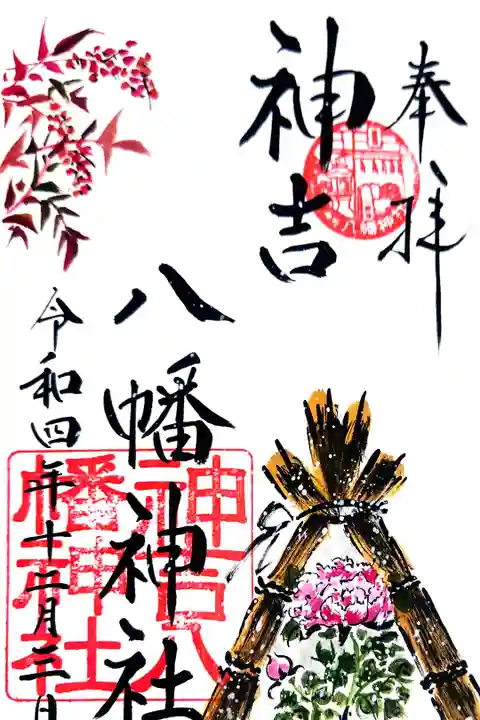 奉拝
神吉
八幡神社
令和四年十二月三日
神吉八
幡神社
八幡神